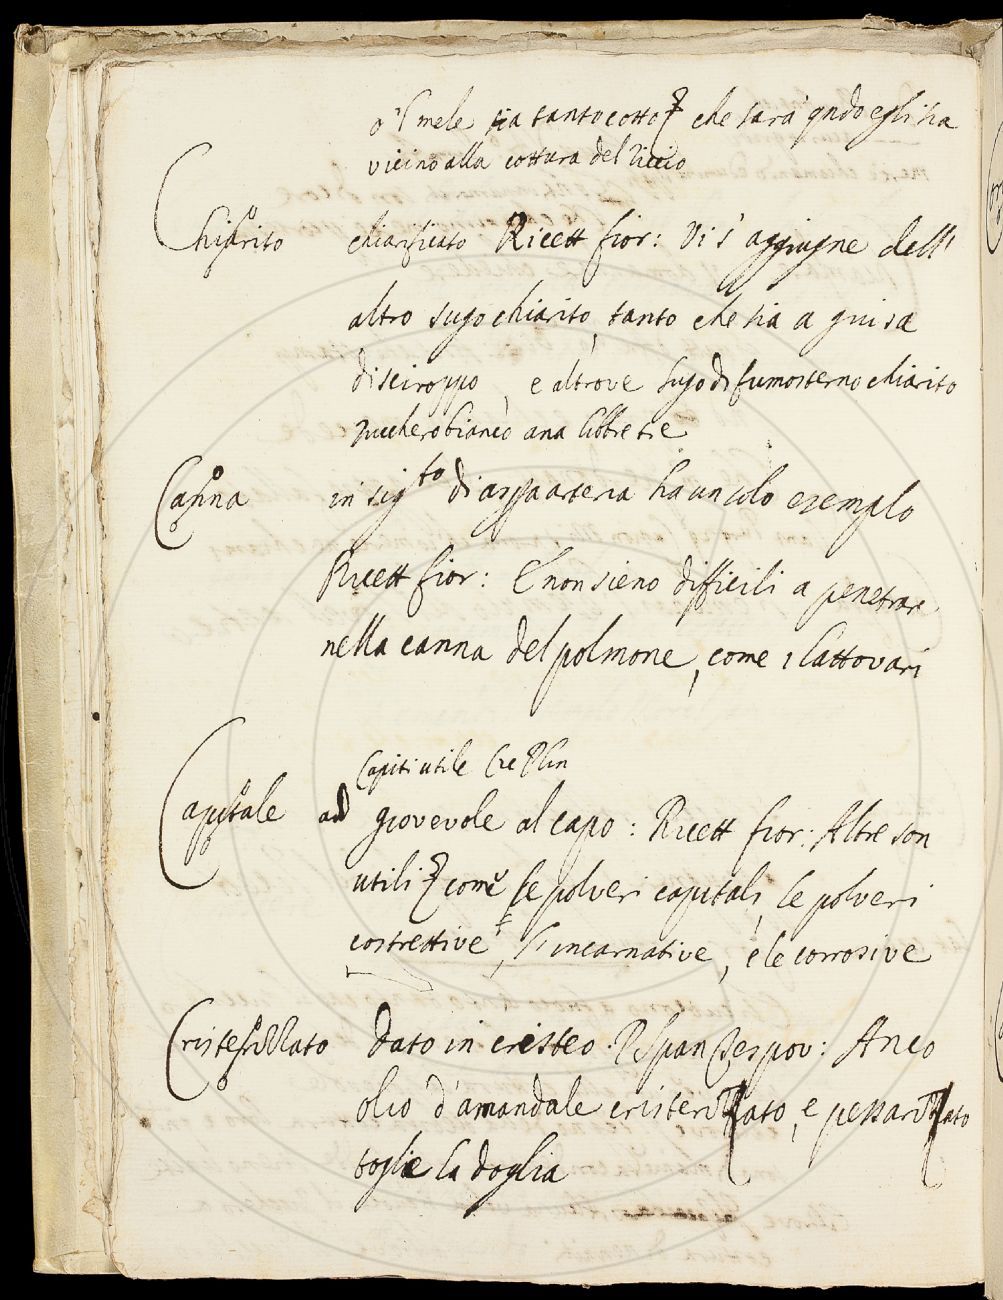 o 'l mele sia tanto cotto che sarà qndo egli sia
vicino alla cottura del
Chiarito chiarificato Ricett fior: Vi s'aggiugne dell'
altro sugo chiarito, tanto che sia a guisa
di sciroppo, e altrove sugo di fumosterno chiarito
zucchero bianco ana libbre tre
Canna in sigto di aspra arteria ha un solo esemplo
Ricett fior: E non sieno difficili a penetrar
nella canna del polmone, come i lattovari
Capiti utile Cre Plin
Capitale ad giovevole al capo: Ricett fior: Altre son
utili come le polveri capitali, le polveri
costrettive, l'incarnative, e le corrosive
Cristerizzato dato in cristeo. P Span Tes pov: Anco
olio d'amandole cristerizzato, e pessarizzato
toglie la doglia